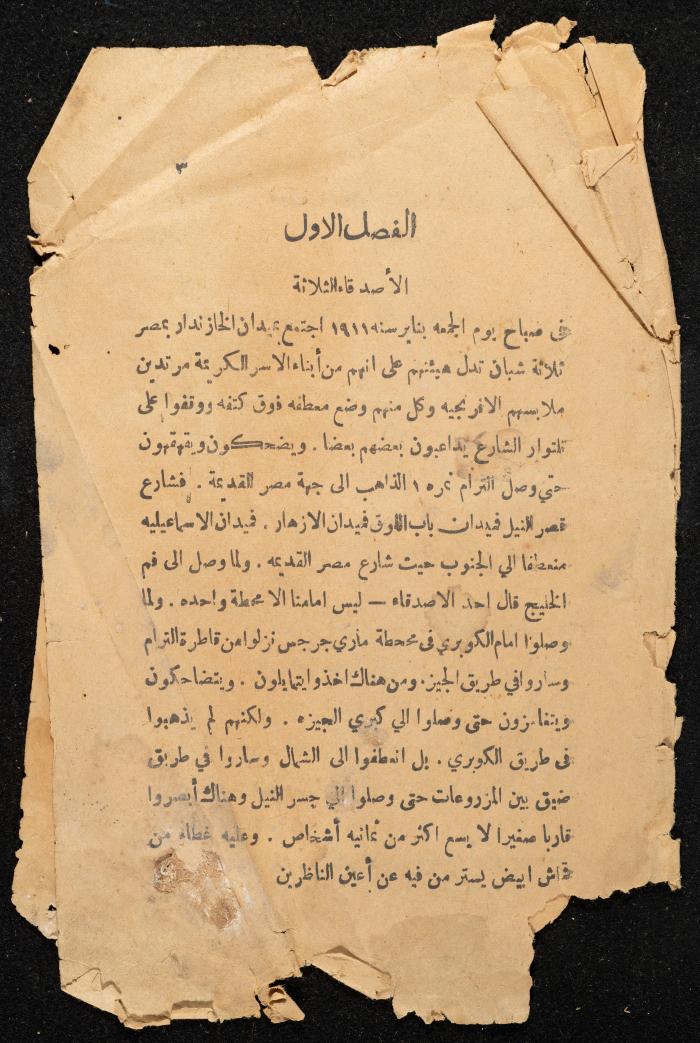 ٣
الفصل الاول
الأصدقاء الثلاثة
فى صباح يوم الجمعه يناير سنه ١٩١١ اجتمع بميدان الخازندار بمصر
ثلاثة شبان تدل هيئتهم على انهم من أبناء الاسر الكريمة مرتدين
ملابسهم الافرنجيه وكل منهم وضع معطفه فوق كتفه ووقفوا على
تلتوار الشارع يداعبون بعضهم بعضا . ويضحكون ويقهقهون
حتي وصل الترام نمره ١ الذاهب الى جهة مصر القديمة . فشارع
قصر النيل فميدان باب اللوق فميدان الازهار . فميدان الاسماعيليه
منعطفا الي الجنوب حيث شارع مصر القديمه . ولما وصل الى فم
الخليج قال احد الاصدقاء — ليس امامنا الا محطة واحده . ولما
وصلوا امام الكوبري فى محطة ماري جرجس نزلوا من قاطرة الترام
وساروا في طريق الجيز . ومن هناك اخذوا يتمايلون . ويتضاحكون
ويتغامزون حتى وصلوا الي كبري الجيزه . ولكنهم لم يذهبوا
فى طريق الكوبري . بل انعطفوا الى الشمال وساروا في طريق
ضيق بين المزروعات حتى وصلوا الي جسر النيل وهناك أبصروا
قاربا صغيرا لا يسع اكثر من ثمانيه أشخاص . وعليه غطاء من
قماش ابيض يستر من فيه عن أعين الناظرين